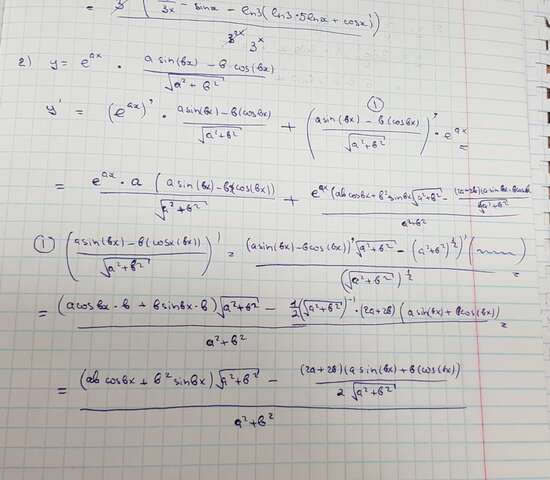 = 3 ( 3x - sin x - ln3 (ln3·5lnx + cosx) )
3^2x 3^x
2) y = e^ax · (a sin(bx) - b cos(bx)) / √(a² + b²)
①
y' = (e^ax)' · (a sin(bx) - b(cosbx)) / √(a² + b²) + ( (a sin(bx) - b(cosbx)) / √(a² + b²) )' · e^ax =
= e^ax · a (a sin(bx) - b(cos(bx))) / √(a² + b²) + e^ax (ab cosbx + b² sinbx √(a² + b²) - (2a+2b)(a sinbx - b cosbx) / √(a² + b²)) / (a² + b²)
① ( (a sin(bx) - b(cos(bx))) / √(a² + b²) )' = ( (a sin(bx) - b cos(bx))' √(a² + b²) - ((a² + b²)^½)' ( ) ) / (√(a² + b²))^½ =
= ( (a cosbx · b + b sinbx · b) √(a² + b²) - ½ (√(a² + b²))^-1 · (2a + 2b) (a sin(bx) + b cos(bx)) ) / (a² + b²) =
= ( (ab cosbx + b² sinbx) √(a² + b²) - (2a + 2b)(a sin(bx) + b(cos(bx)) / 2√(a² + b²) ) / (a² + b²)